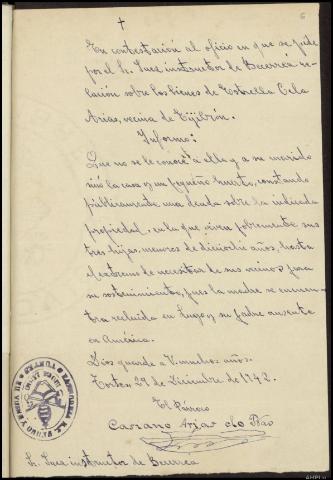 6
En contestación al oficio en que se pide
por el Sr. Juez instructor de Becerreá re-
lación sobre los bienes de Estrella Cela
Arias, vecina de
Informo:
Que no se le conoce á ella y a su marido
sinó la casa y un pequeño huerto, constando
públicamente una deuda sobre la indicada
propiedad, en la que viven pobremente sus
tres hijas, menores de dieciocho años, hasta
el extremo de necesitar de sus vecinos para
su sostenimiento, pues la madre se encuen-
tra recluida en Lugo y su padre ausente
en América.
Dios guarde a V. muchos años.
29 de Diciembre de 1942.
El Párroco
Sr. Juez instructor de Becerreá
AHPLu